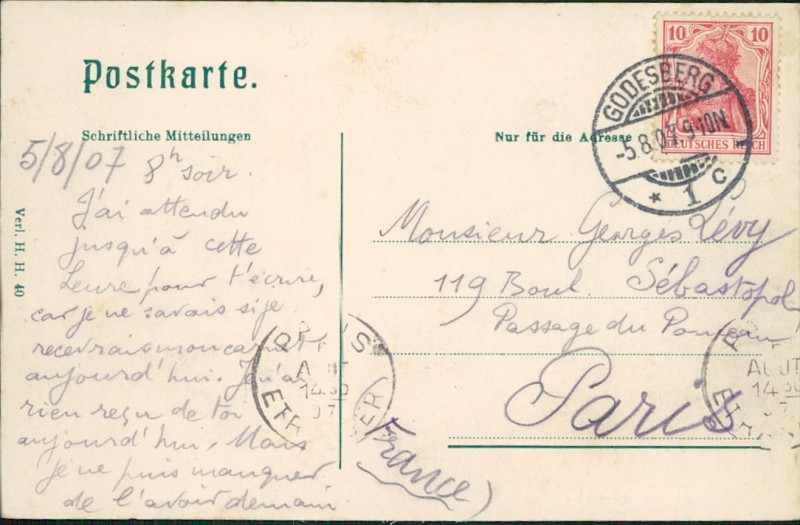 Postkarte.
Schriftliche Mitteilungen
5/8/07 8h soir.
J'ai attendu
jusqu'à cette
heure pour t'écrire,
car je ne savais si je
recevrais mon
aujourd'hui. J'n'ai
rien reçu de toi
aujourd'hui. Mais
je ne puis manquer
de l'avoir demain
Verl. H. H. 40
Nur für die Adresse
10 10
DEUTSCHES REICH
GODESBERG
-5.8.07.9-10N
* 1 c
Monsieur Georges Lévy
119 Boul. Sébastopol
Passage du Ponceau
Paris
(France)
PARIS
AOUT
14 30
07
ETRANGER
AOUT
14 30